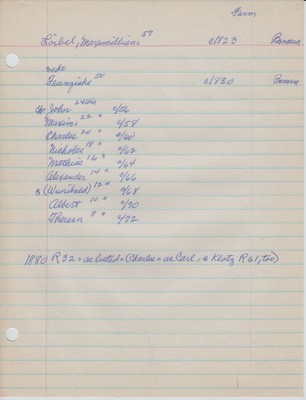 Farm
Loibel, Maxmillian 57 c1823 Bavaria
Franziske 50 c1830 Bavaria
John 24 c/56
Maxim. 22 " c/58
Charles 20 " c/60
Nicholas 18 " c/62
Mathias 16 " c/64
Alexander 14 " c/66
(Wunibald) 12 " c/68
Albert 10 " c/70
Theresa 8 " c/72
1880 R 32 = as listed = (Charles = as Carl = @ Klotz R 61, too)